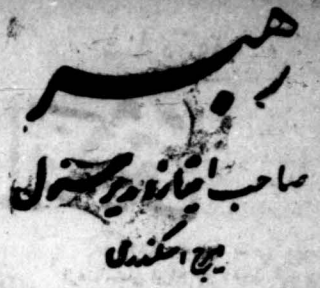 رهبر
صاحب امتیاز و مدیر مسئول
ایرج اسکندری